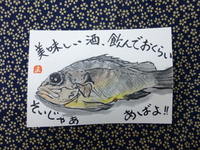 美味しい酒、飲んでおくらい
そいじゃぁ
あばよ!!